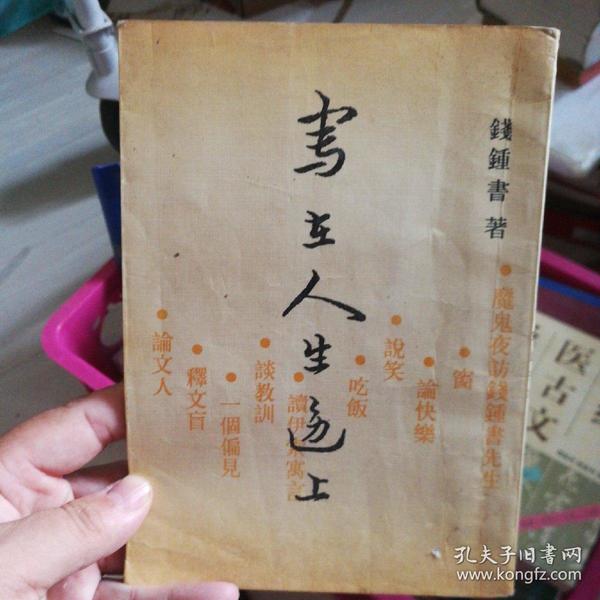 錢鍾書著
寫在人生邊上
魔鬼夜訪錢鍾書先生
窗
論快樂
說笑
吃飯
讀伊索寓言
談教訓
一個偏見
釋文盲
論文人
医古文
孔夫子旧书网
www.kongfz.com